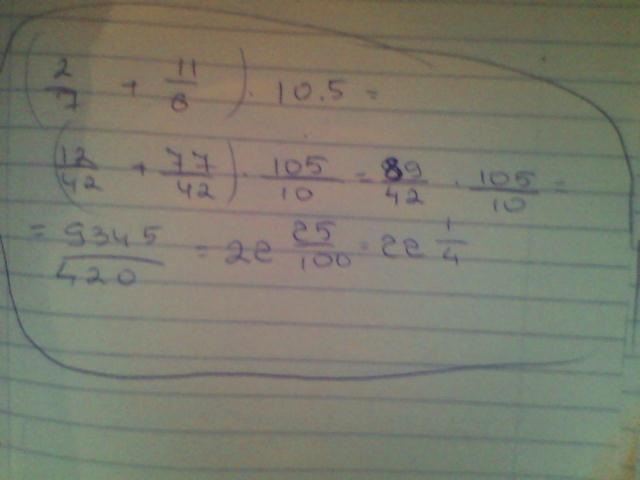 (2/7 + 11/6) · 10.5 =
(12/42 + 77/42) · 105/10 = 89/42 · 105/10 =
= 9345/420 = 22 25/100 = 22 1/4